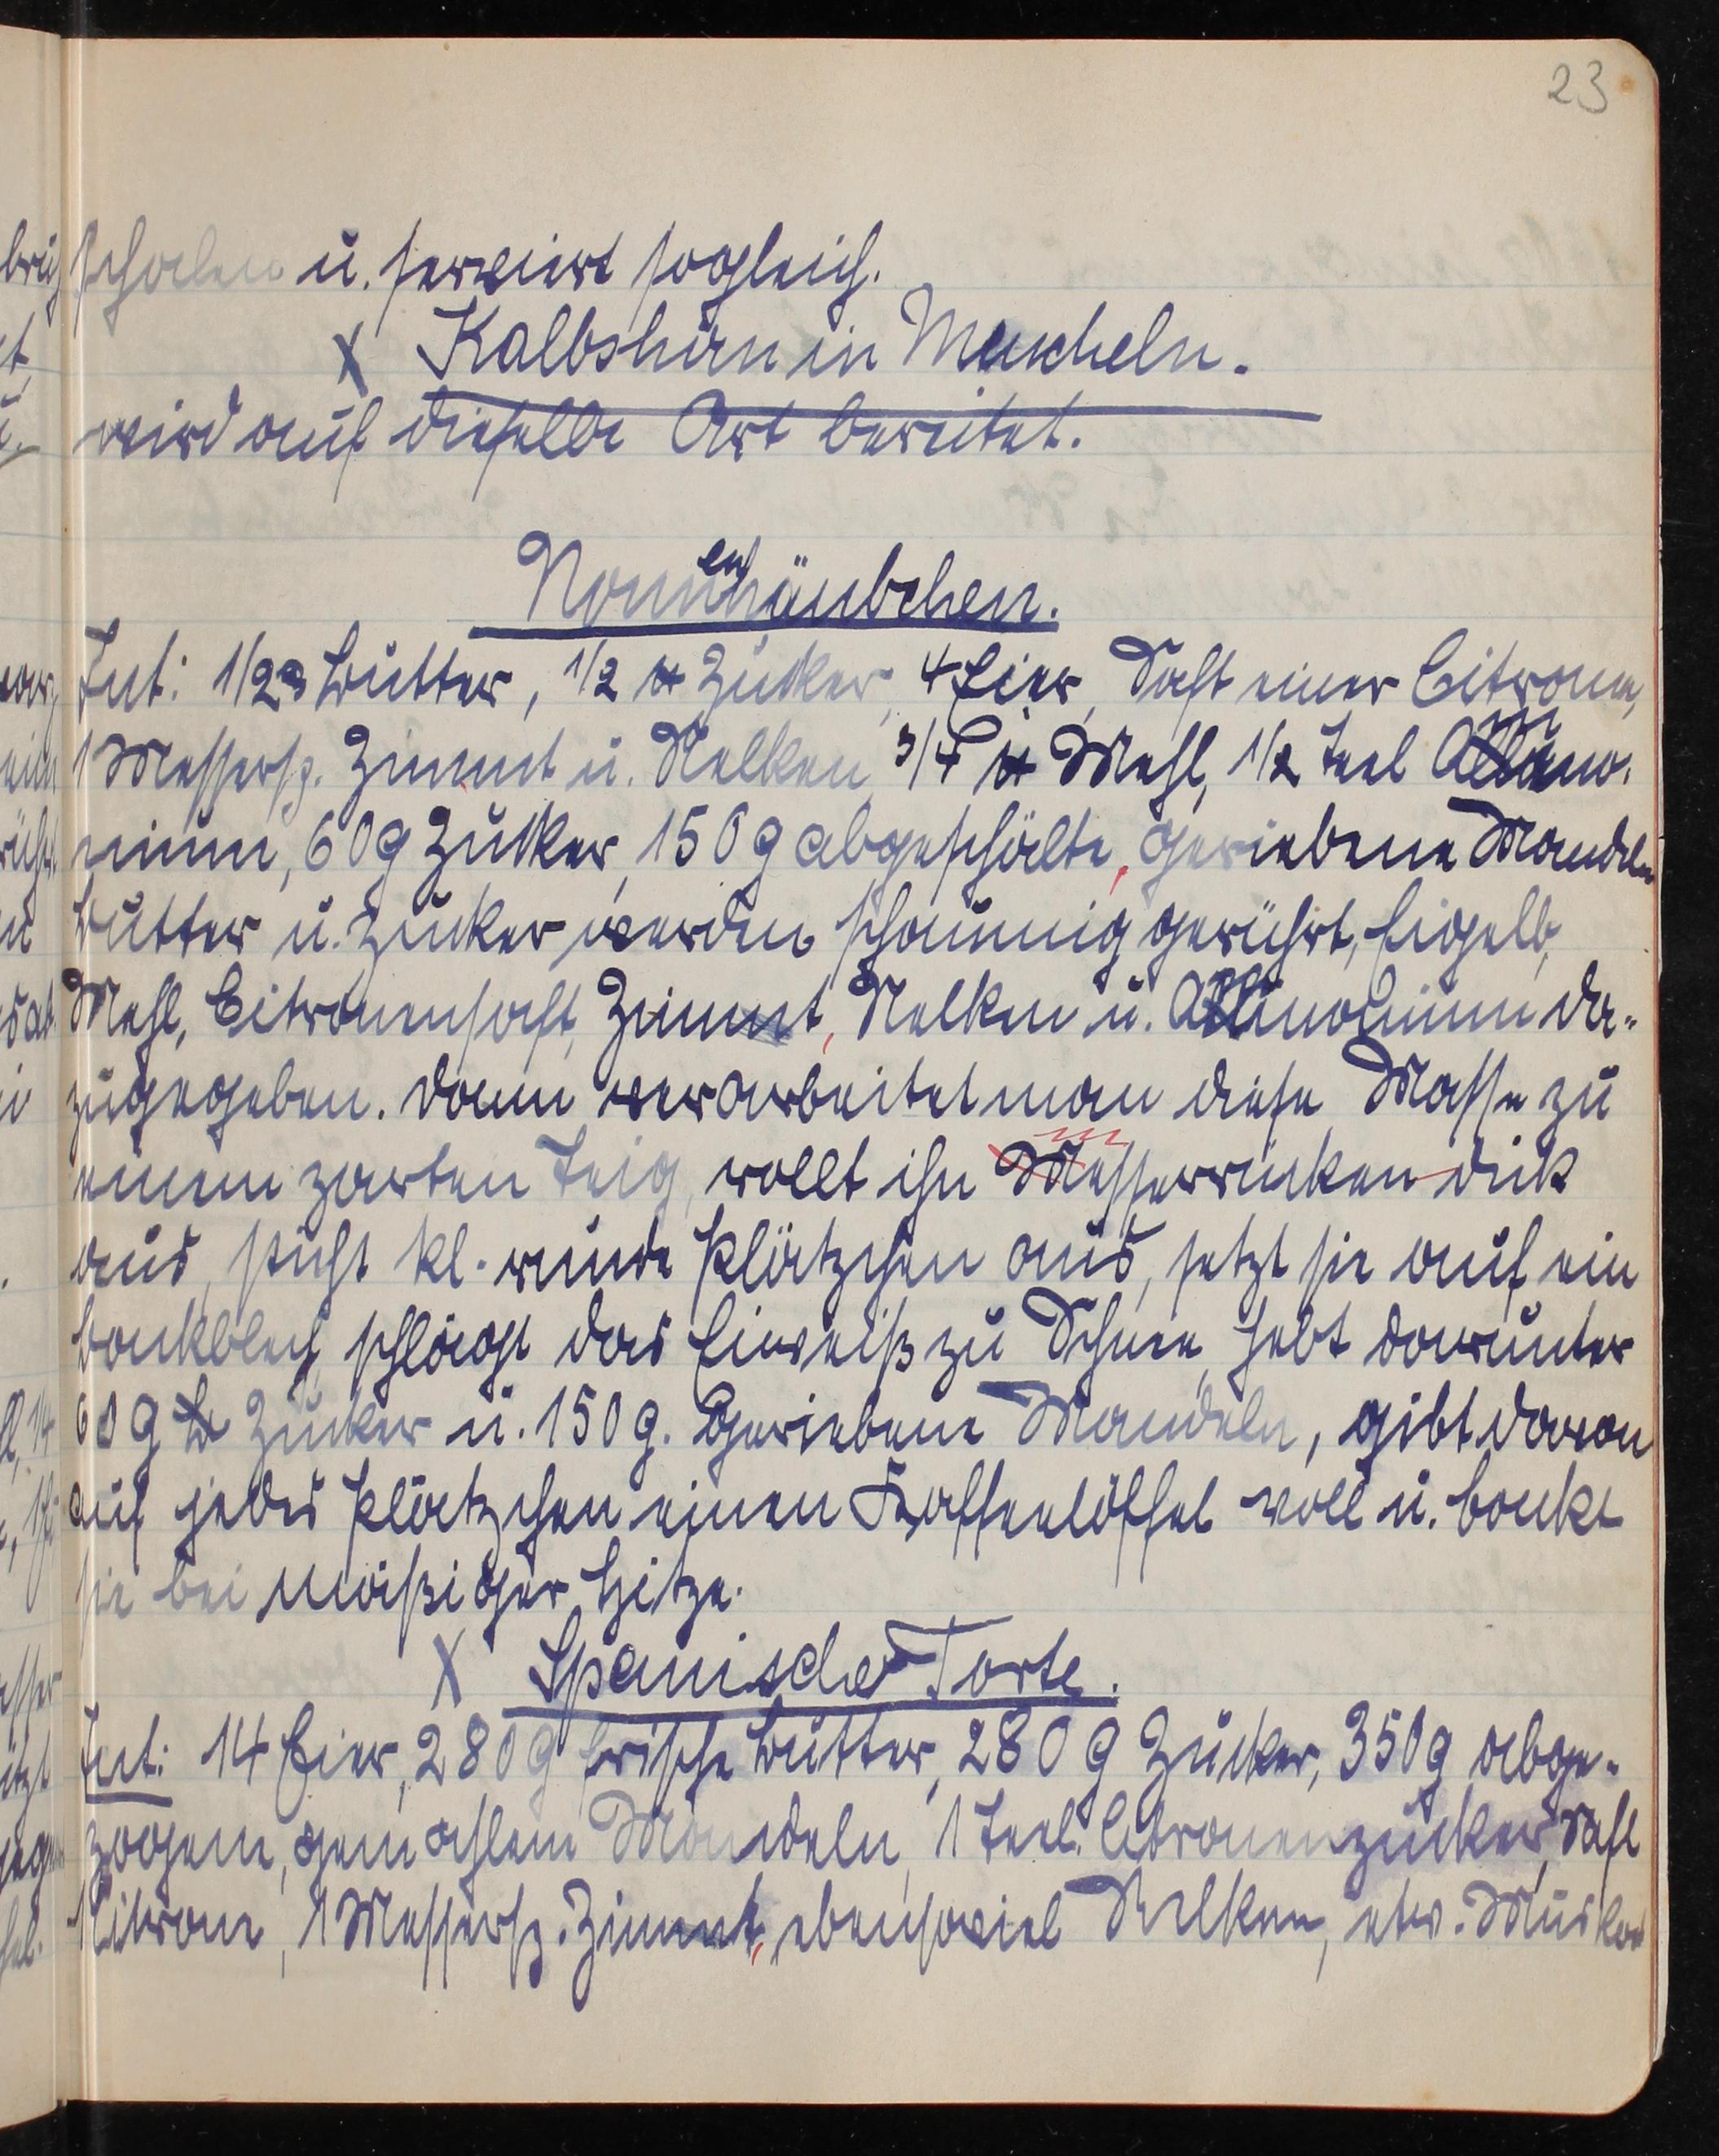 23
schalen u. serviert sogleich.
X Kalbshirn in Muscheln.
wird auf dieselbe Art bereitet.
Nonnenhäubchen.
Zut: 1/2 ℔ Butter, 1/2 ℔ Zucker, 4 Eier, Saft einer Citrone,
1 Messersp. Zimmt u. Nelken, 3/4 ℔ Mehl, 1/2 Teel Ammo-
nium, 60g Zucker, 150g abgeschälte, geriebene Mandeln
Butter u. Zucker werden schaumig gerührt, Eigelb,
Mehl, Citronensaft, Zimmt, Nelken u. Ammonium da-
zugegeben. Dann verarbeitet man diese Masse zu
einem zarten Teig, rollt ihn Messerrücken dick
aus, sticht kl. runde Plätzchen aus, setzt sie auf ein
Backblech, schlägt das Eiweiß zu Schnee, hebt darunter
60g Zucker u. 150g. geriebene Mandeln, gibt davon
auf jedes Plätzchen einen Kaffeelöffel voll u. backt
sie bei mäßiger Hitze.
X Spanische Torte.
Zut: 14 Eier, 280g frische Butter, 280g Zucker, 350g abge-
zogene, gemahlene Mandeln, 1 Teel. Citronenzucker, Saft
1 Citrone, 1 Messersp. Zimmt, ebensoviel Nelken, etw. Muskat